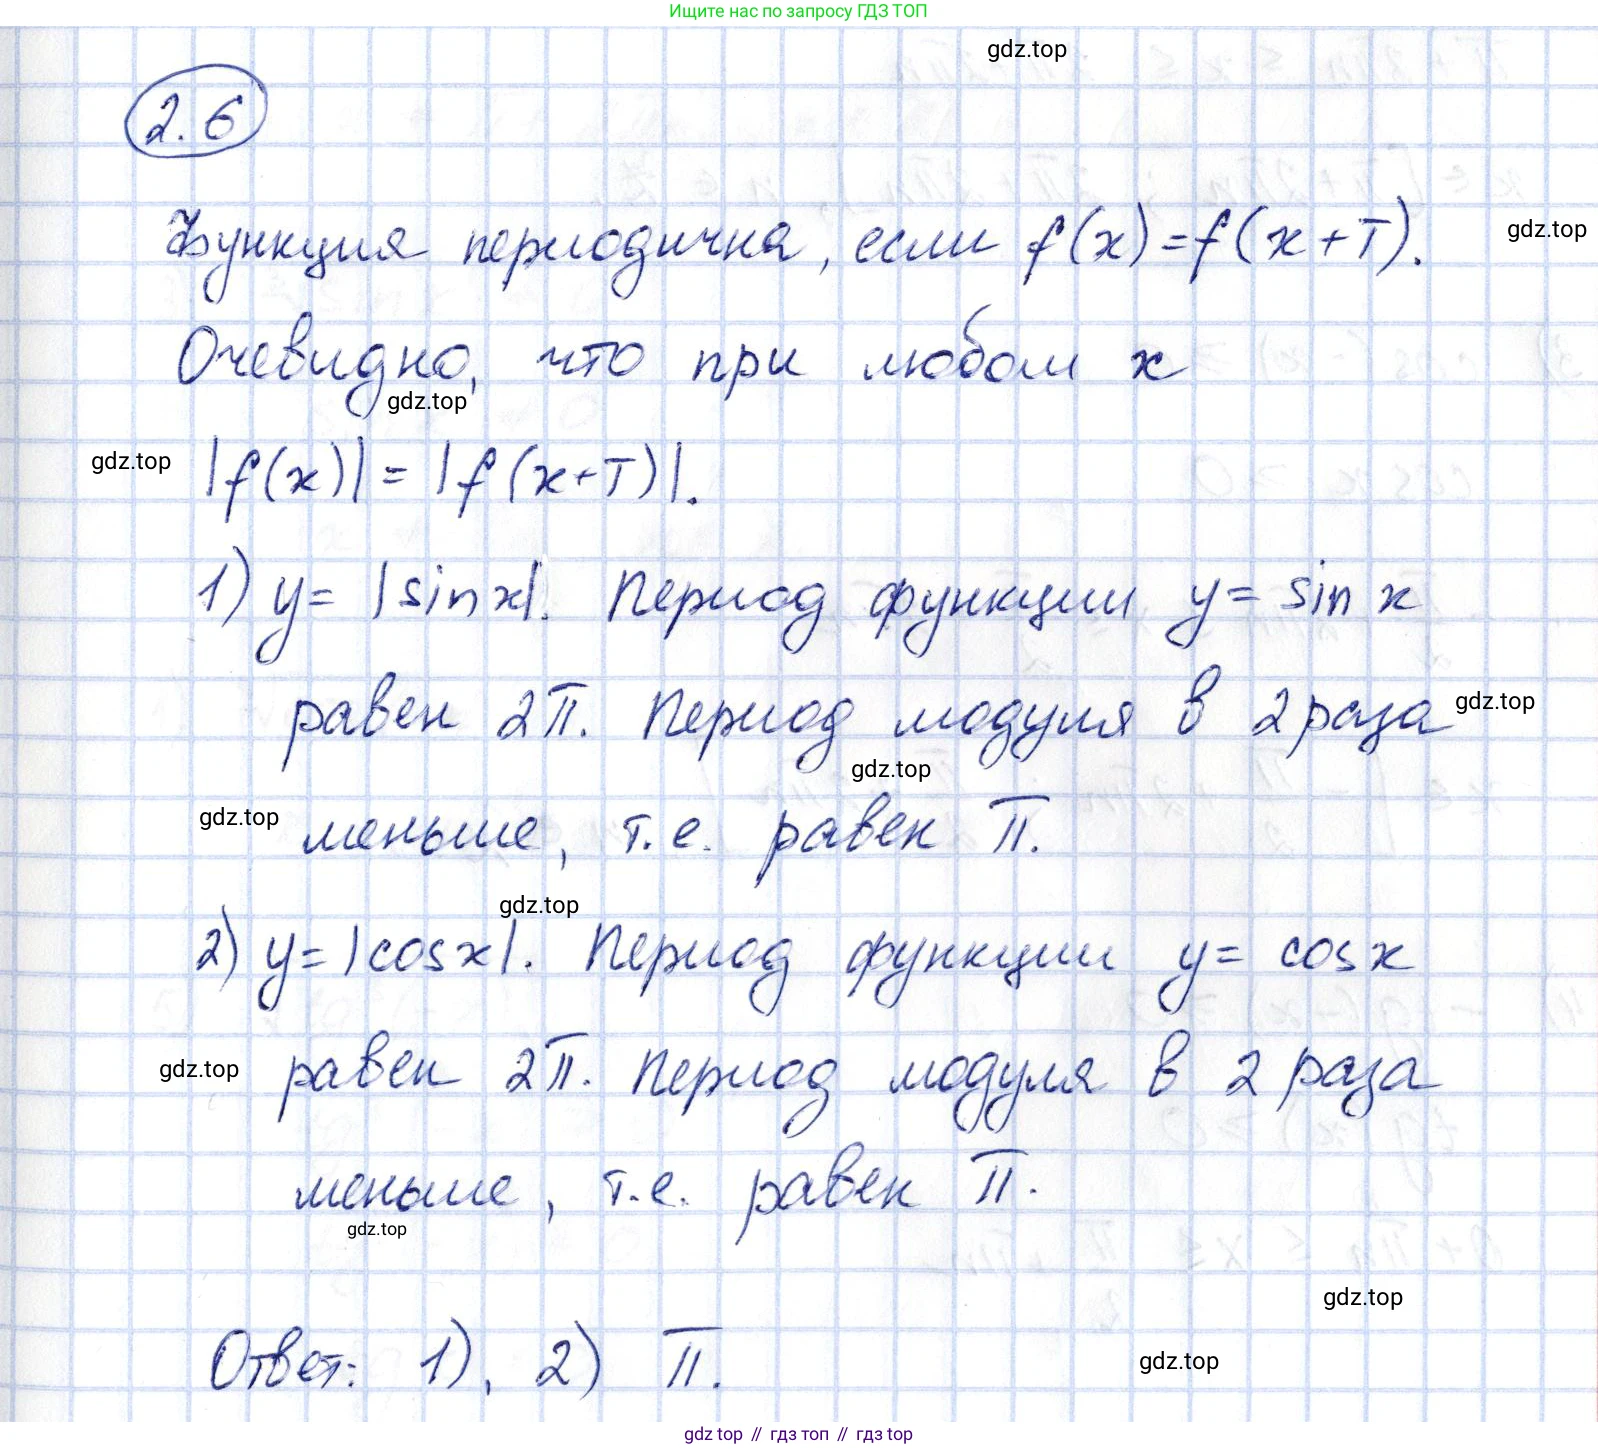 Ищите нас по запросу ГДЗ ТОП
gdz.top
2.6
Функция периодична, если f(x)=f(x+T).
gdz.top
Очевидно, что при любом x
gdz.top
gdz.top
|f(x)| = |f(x+T)|.
1) y= |sin x|. Период функции y= sin x
равен 2π. Период модуля в 2 раза
gdz.top
gdz.top
gdz.top
меньше, т.е. равен π.
gdz.top
2) y=|cos x|. Период функции y= cos x
gdz.top
равен 2π. Период модуля в 2 раза
меньше, т.е. равен π.
gdz.top
gdz.top
Ответ: 1), 2) π.
gdz.top
gdz top // гдз топ // гдз top